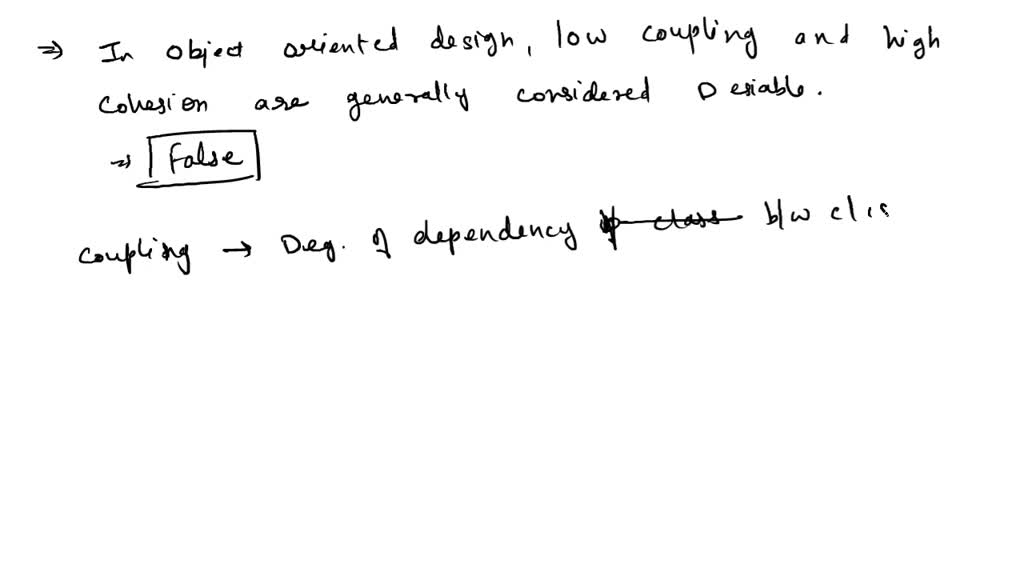 ⇒ In object oriented design, low coupling and high
cohesion are generally considered Desiable.
⇒ False
coupling → Deg. of dependency if class b/w clas